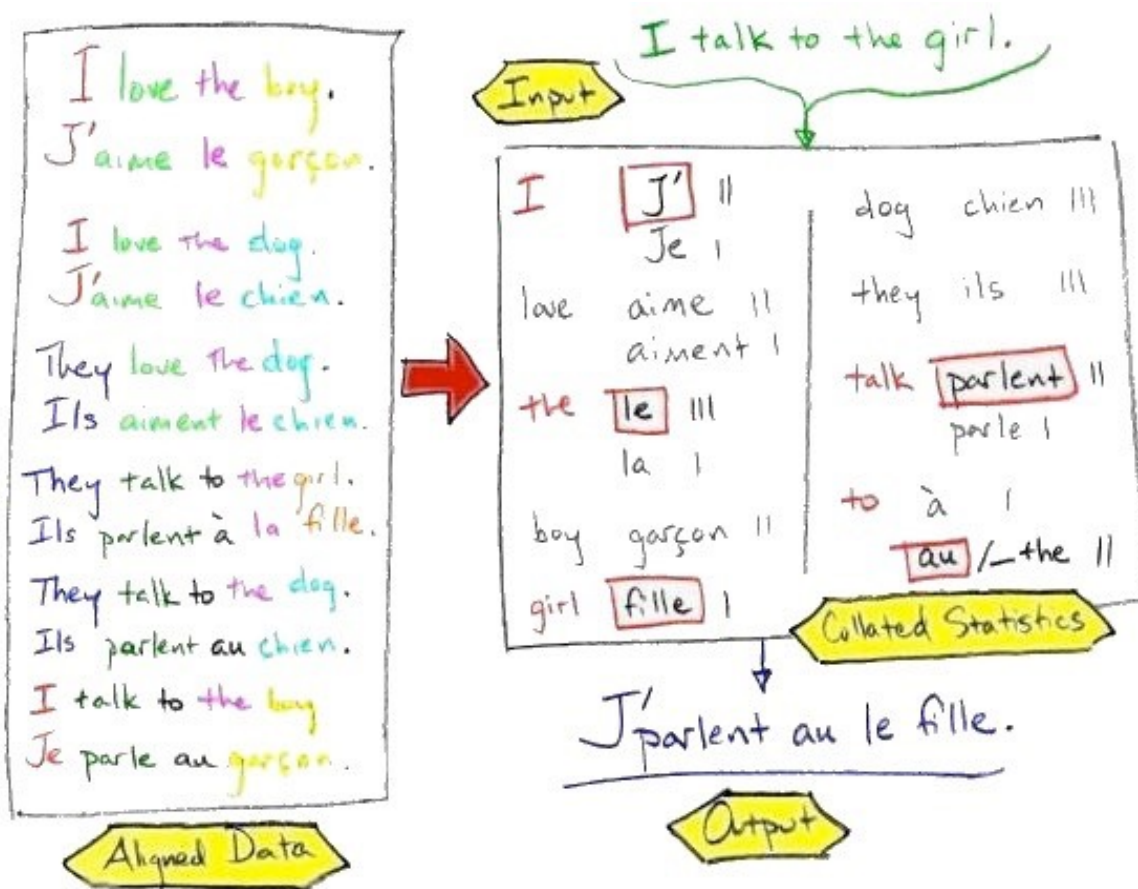 I love the boy.
J'aime le garçon.
I love the dog.
J'aime le chien.
They love the dog.
Ils aiment le chien.
They talk to the girl.
Ils parlent à la fille.
They talk to the dog.
Ils parlent au chien.
I talk to the boy
Je parle au garçon.
Aligned Data
I talk to the girl.
Input
I J' ||
Je |
love aime ||
aiment |
the le |||
la |
boy garçon ||
girl fille |
dog chien |||
they ils |||
talk parlent ||
parle |
to à |
au /_the ||
Collated Statistics
J'parlent au le fille.
Output